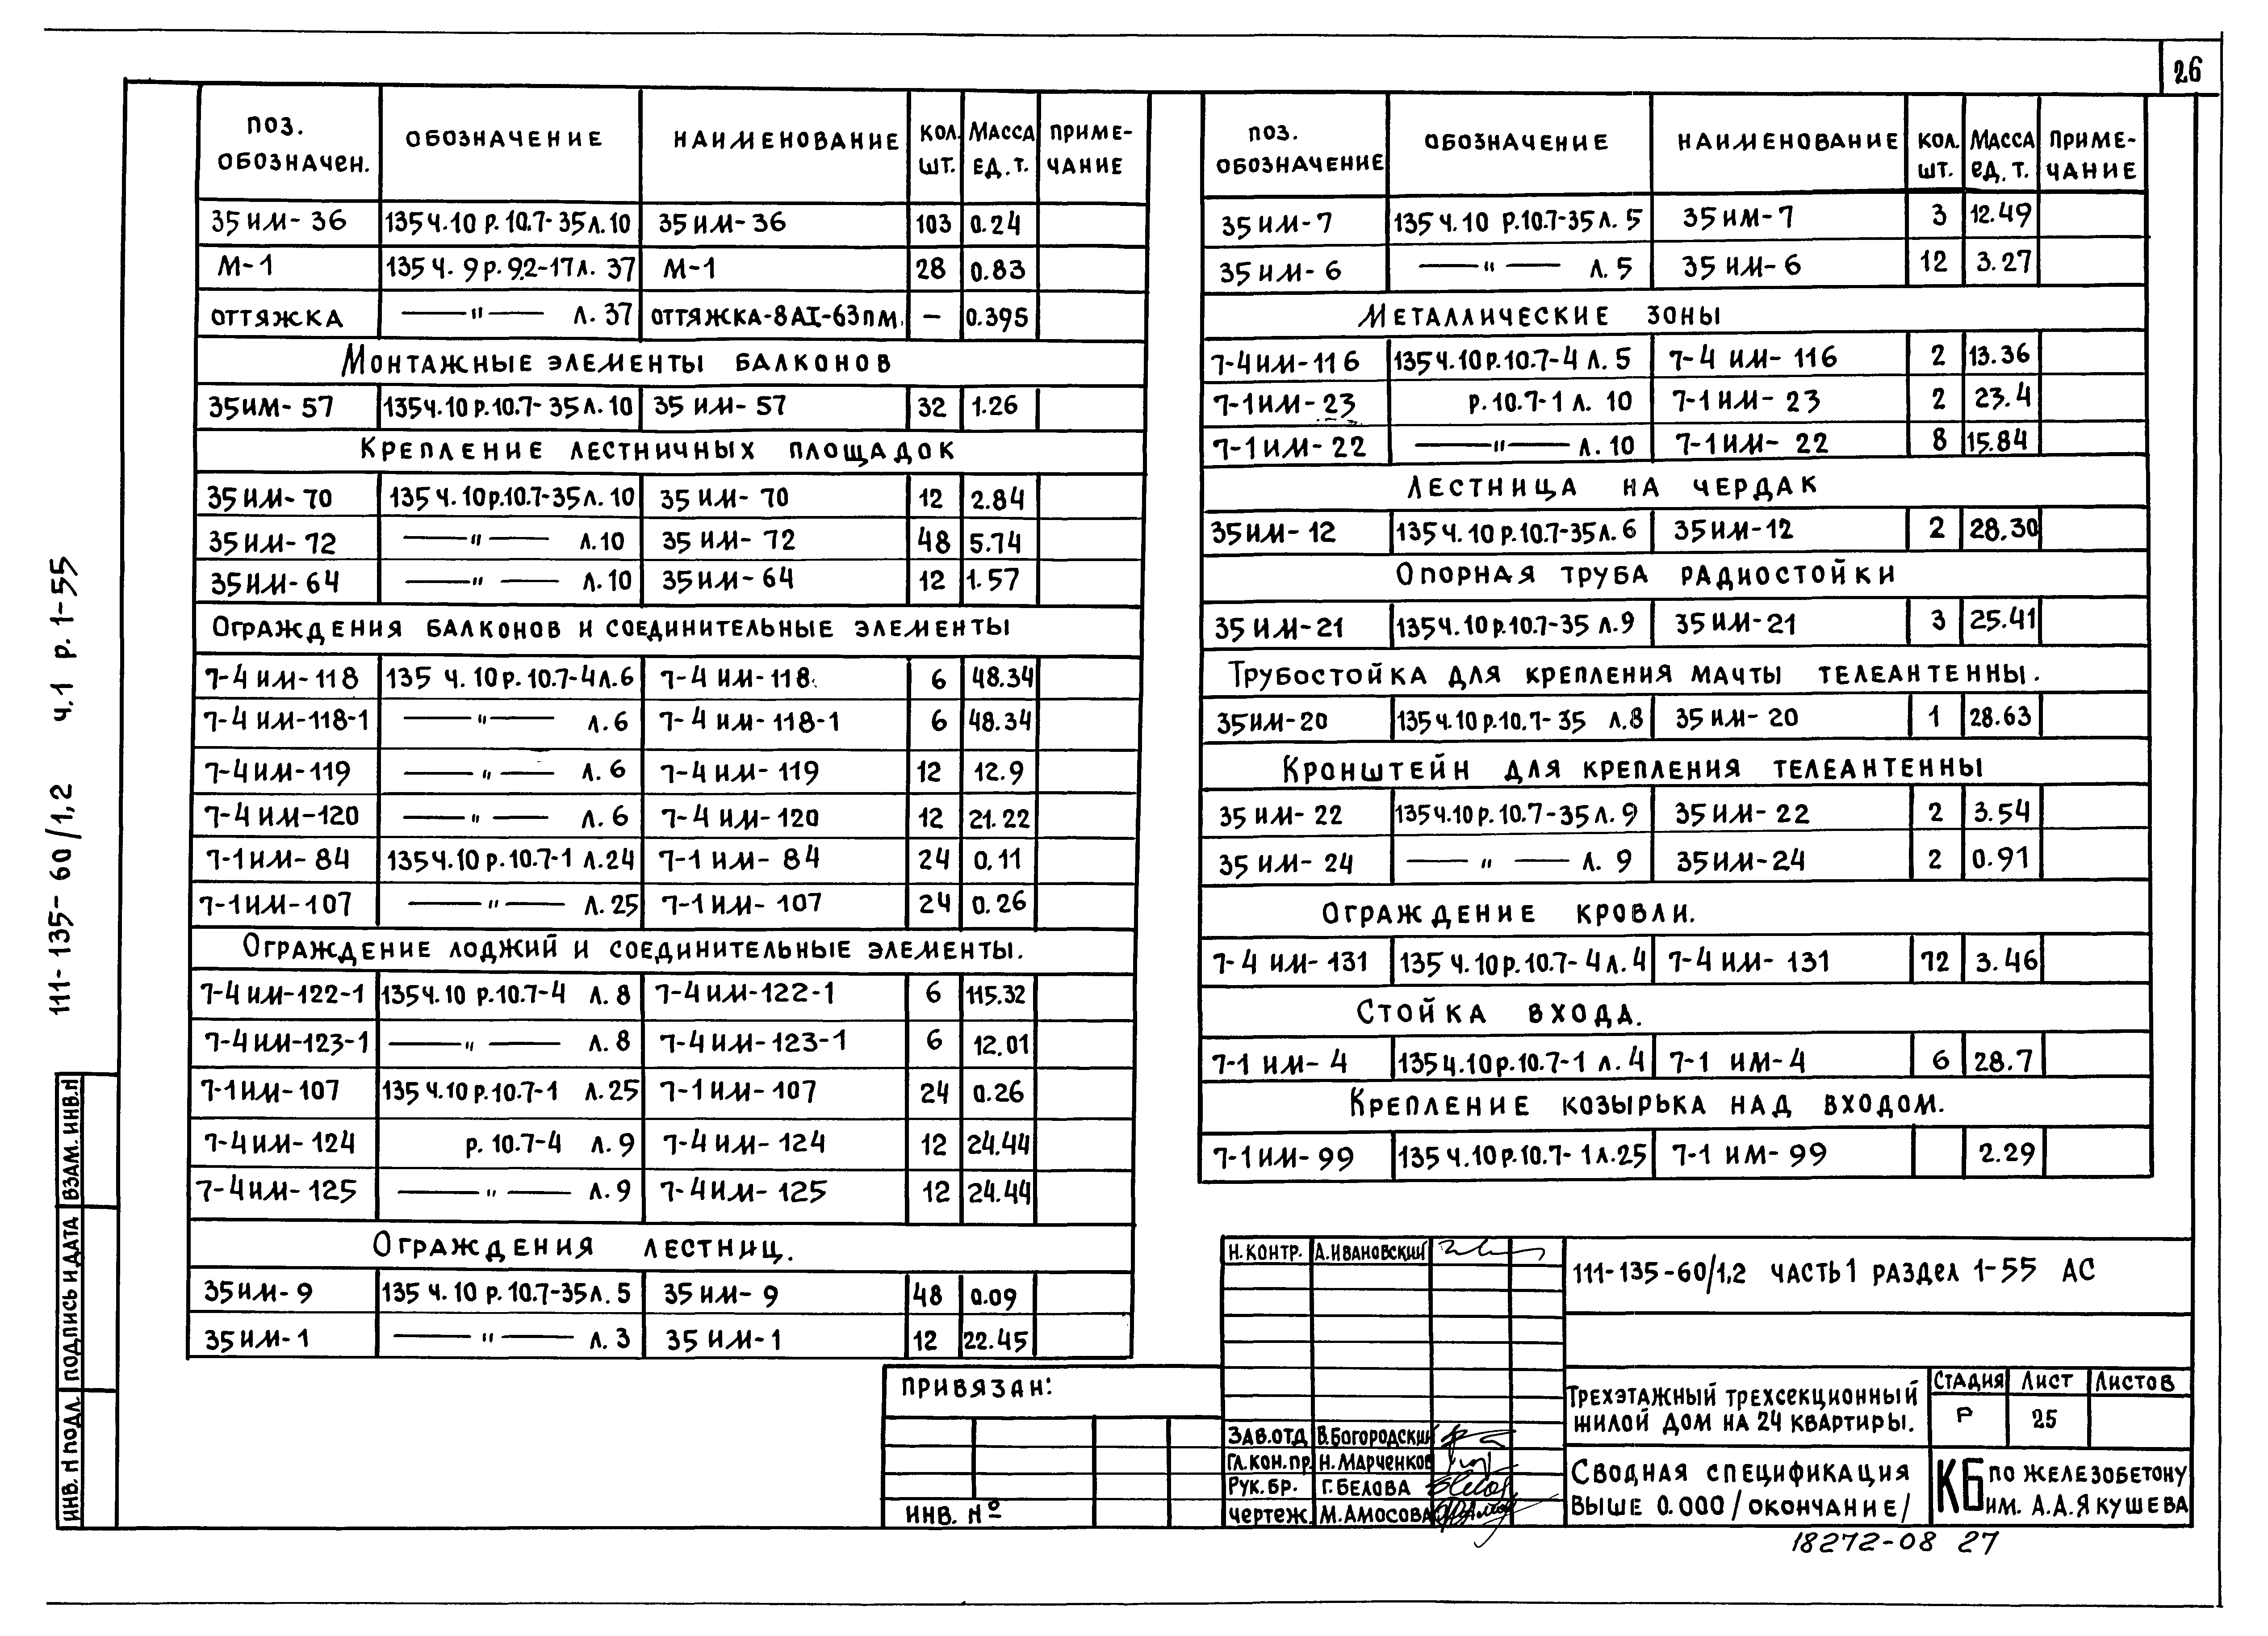 26
ПОЗ. ОБОЗНАЧЕН. ОБОЗНАЧЕНИЕ НАИМЕНОВАНИЕ КОЛ. ШТ. МАССА ЕД. Т. ПРИМЕ-ЧАНИЕ
35 ИМ-36 135 Ч.10 Р.10.7-35 Л.10 35 ИМ-36 103 0.24
М-1 135 Ч. 9 Р. 9.2-17 Л. 37 М-1 28 0.83
ОТТЯЖКА —"— Л. 37 ОТТЯЖКА-8АI-63 П М. – 0.395
МОНТАЖНЫЕ ЭЛЕМЕНТЫ БАЛКОНОВ
35 ИМ-57 135 Ч.10 Р.10.7-35 Л.10 35 ИМ-57 32 1.26
КРЕПЛЕНИЕ ЛЕСТНИЧНЫХ ПЛОЩАДОК
35 ИМ-70 135 Ч.10 Р.10.7-35 Л.10 35 ИМ-70 12 2.84
35 ИМ-72 —"— Л.10 35 ИМ-72 48 5.74
35 ИМ-64 —"— Л.10 35 ИМ-64 12 1.57
ОГРАЖДЕНИЯ БАЛКОНОВ И СОЕДИНИТЕЛЬНЫЕ ЭЛЕМЕНТЫ
7-4 ИМ-118 135 Ч.10 Р.10.7-4 Л.6 7-4 ИМ-118 6 48.34
7-4 ИМ-118-1 —"— Л.6 7-4 ИМ-118-1 6 48.34
7-4 ИМ-119 —"— Л.6 7-4 ИМ-119 12 12.9
7-4 ИМ-120 —"— Л.6 7-4 ИМ-120 12 21.22
7-1 ИМ-84 135 Ч.10 Р.10.7-1 Л.24 7-1 ИМ-84 24 0.11
7-1 ИМ-107 —"— Л.25 7-1 ИМ-107 24 0.26
ОГРАЖДЕНИЕ ЛОДЖИЙ И СОЕДИНИТЕЛЬНЫЕ ЭЛЕМЕНТЫ.
7-4 ИМ-122-1 135 Ч.10 Р.10.7-4 Л.8 7-4 ИМ-122-1 6 115.32
7-4 ИМ-123-1 —"— Л.8 7-4 ИМ-123-1 6 12.01
7-1 ИМ-107 135 Ч.10 Р.10.7-1 Л.25 7-1 ИМ-107 24 0.26
7-4 ИМ-124 Р. 10.7-4 Л.9 7-4 ИМ-124 12 24.44
7-4 ИМ-125 —"— Л.9 7-4 ИМ-125 12 24.44
ОГРАЖДЕНИЯ ЛЕСТНИЦ.
35 ИМ-9 135 Ч.10 Р.10.7-35 Л.5 35 ИМ-9 48 0.09
35 ИМ-1 —"— Л.3 35 ИМ-1 12 22.45
ПОЗ. ОБОЗНАЧЕНИЕ ОБОЗНАЧЕНИЕ НАИМЕНОВАНИЕ КОЛ. ШТ. МАССА ЕД. Т. ПРИМЕ-ЧАНИЕ
35 ИМ-7 135 Ч.10 Р.10.7-35 Л.5 35 ИМ-7 3 12.49
35 ИМ-6 —"— Л.5 35 ИМ-6 12 3.27
МЕТАЛЛИЧЕСКИЕ ЗОНЫ
7-4 ИМ-116 135 Ч.10 Р.10.7-4 Л.5 7-4 ИМ-116 2 13.36
7-1 ИМ-23 Р.10.7-1 Л.10 7-1 ИМ-23 2 23.4
7-1 ИМ-22 —"— Л.10 7-1 ИМ-22 8 15.84
ЛЕСТНИЦА НА ЧЕРДАК
35 ИМ-12 135 Ч.10 Р.10.7-35 Л.6 35 ИМ-12 2 28.30
ОПОРНАЯ ТРУБА РАДИОСТОЙКИ
35 ИМ-21 135 Ч.10 Р.10.7-35 Л.9 35 ИМ-21 3 25.41
ТРУБОСТОЙКА ДЛЯ КРЕПЛЕНИЯ МАЧТЫ ТЕЛЕАНТЕННЫ.
35 ИМ-20 135 Ч.10 Р.10.7-35 Л.8 35 ИМ-20 1 28.63
КРОНШТЕЙН ДЛЯ КРЕПЛЕНИЯ ТЕЛЕАНТЕННЫ
35 ИМ-22 135 Ч.10 Р.10.7-35 Л.9 35 ИМ-22 2 3.54
35 ИМ-24 —"— Л.9 35 ИМ-24 2 0.91
ОГРАЖДЕНИЕ КРОВЛИ.
7-4 ИМ-131 135 Ч.10 Р.10.7-4 Л.4 7-4 ИМ-131 72 3.46
СТОЙКА ВХОДА.
7-1 ИМ-4 135 Ч.10 Р.10.7-1 Л.4 7-1 ИМ-4 6 28.7
КРЕПЛЕНИЕ КОЗЫРЬКА НАД ВХОДОМ.
7-1 ИМ-99 135 Ч.10 Р.10.7-1 Л.25 7-1 ИМ-99 2.29
111-135-60/1,2 Ч.1 Р. 1-55
ВЗАМ. ИНВ. Н
ПОДПИСЬ И ДАТА
ИНВ. Н ПОДЛ.
ПРИВЯЗАН:
ИНВ. №
Н. КОНТР. А. ИВАНОВСКИЙ
ЗАВ. ОТД В. БОГОРОДСКИЙ
ГЛ. КОН. ПР. Н. МАРЧЕНКОВ
РУК. БР. Г. БЕЛОВА
ЧЕРТЕЖ. М. АМОСОВА
111-135-60/1,2 ЧАСТЬ 1 РАЗДЕЛ 1-55 АС
ТРЕХЭТАЖНЫЙ ТРЕХСЕКЦИОННЫЙ
ЖИЛОЙ ДОМ НА 24 КВАРТИРЫ.
СТАДИЯ ЛИСТ ЛИСТОВ
Р 25
СВОДНАЯ СПЕЦИФИКАЦИЯ
ВЫШЕ 0.000 /ОКОНЧАНИЕ/
КБ ПО ЖЕЛЕЗОБЕТОНУ
ИМ. А.А. ЯКУШЕВА
18272-08 27